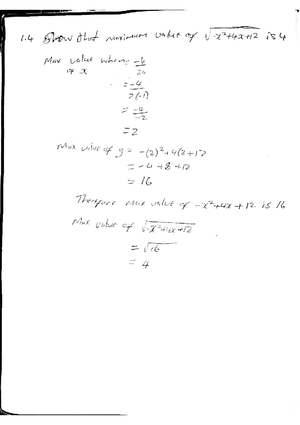 1.4 Show that maximum value of √-x²+4x+12 is 4
Max value when = -b
of x 2a
= -4
2(-1)
= -4
-2
= 2
Max value of y = -(2)²+4(2)+12
= -4+8+12
= 16
Therefore max value of -x²+4x+12 is 16
Max value of √-x²+4x+12
= √16
= 4